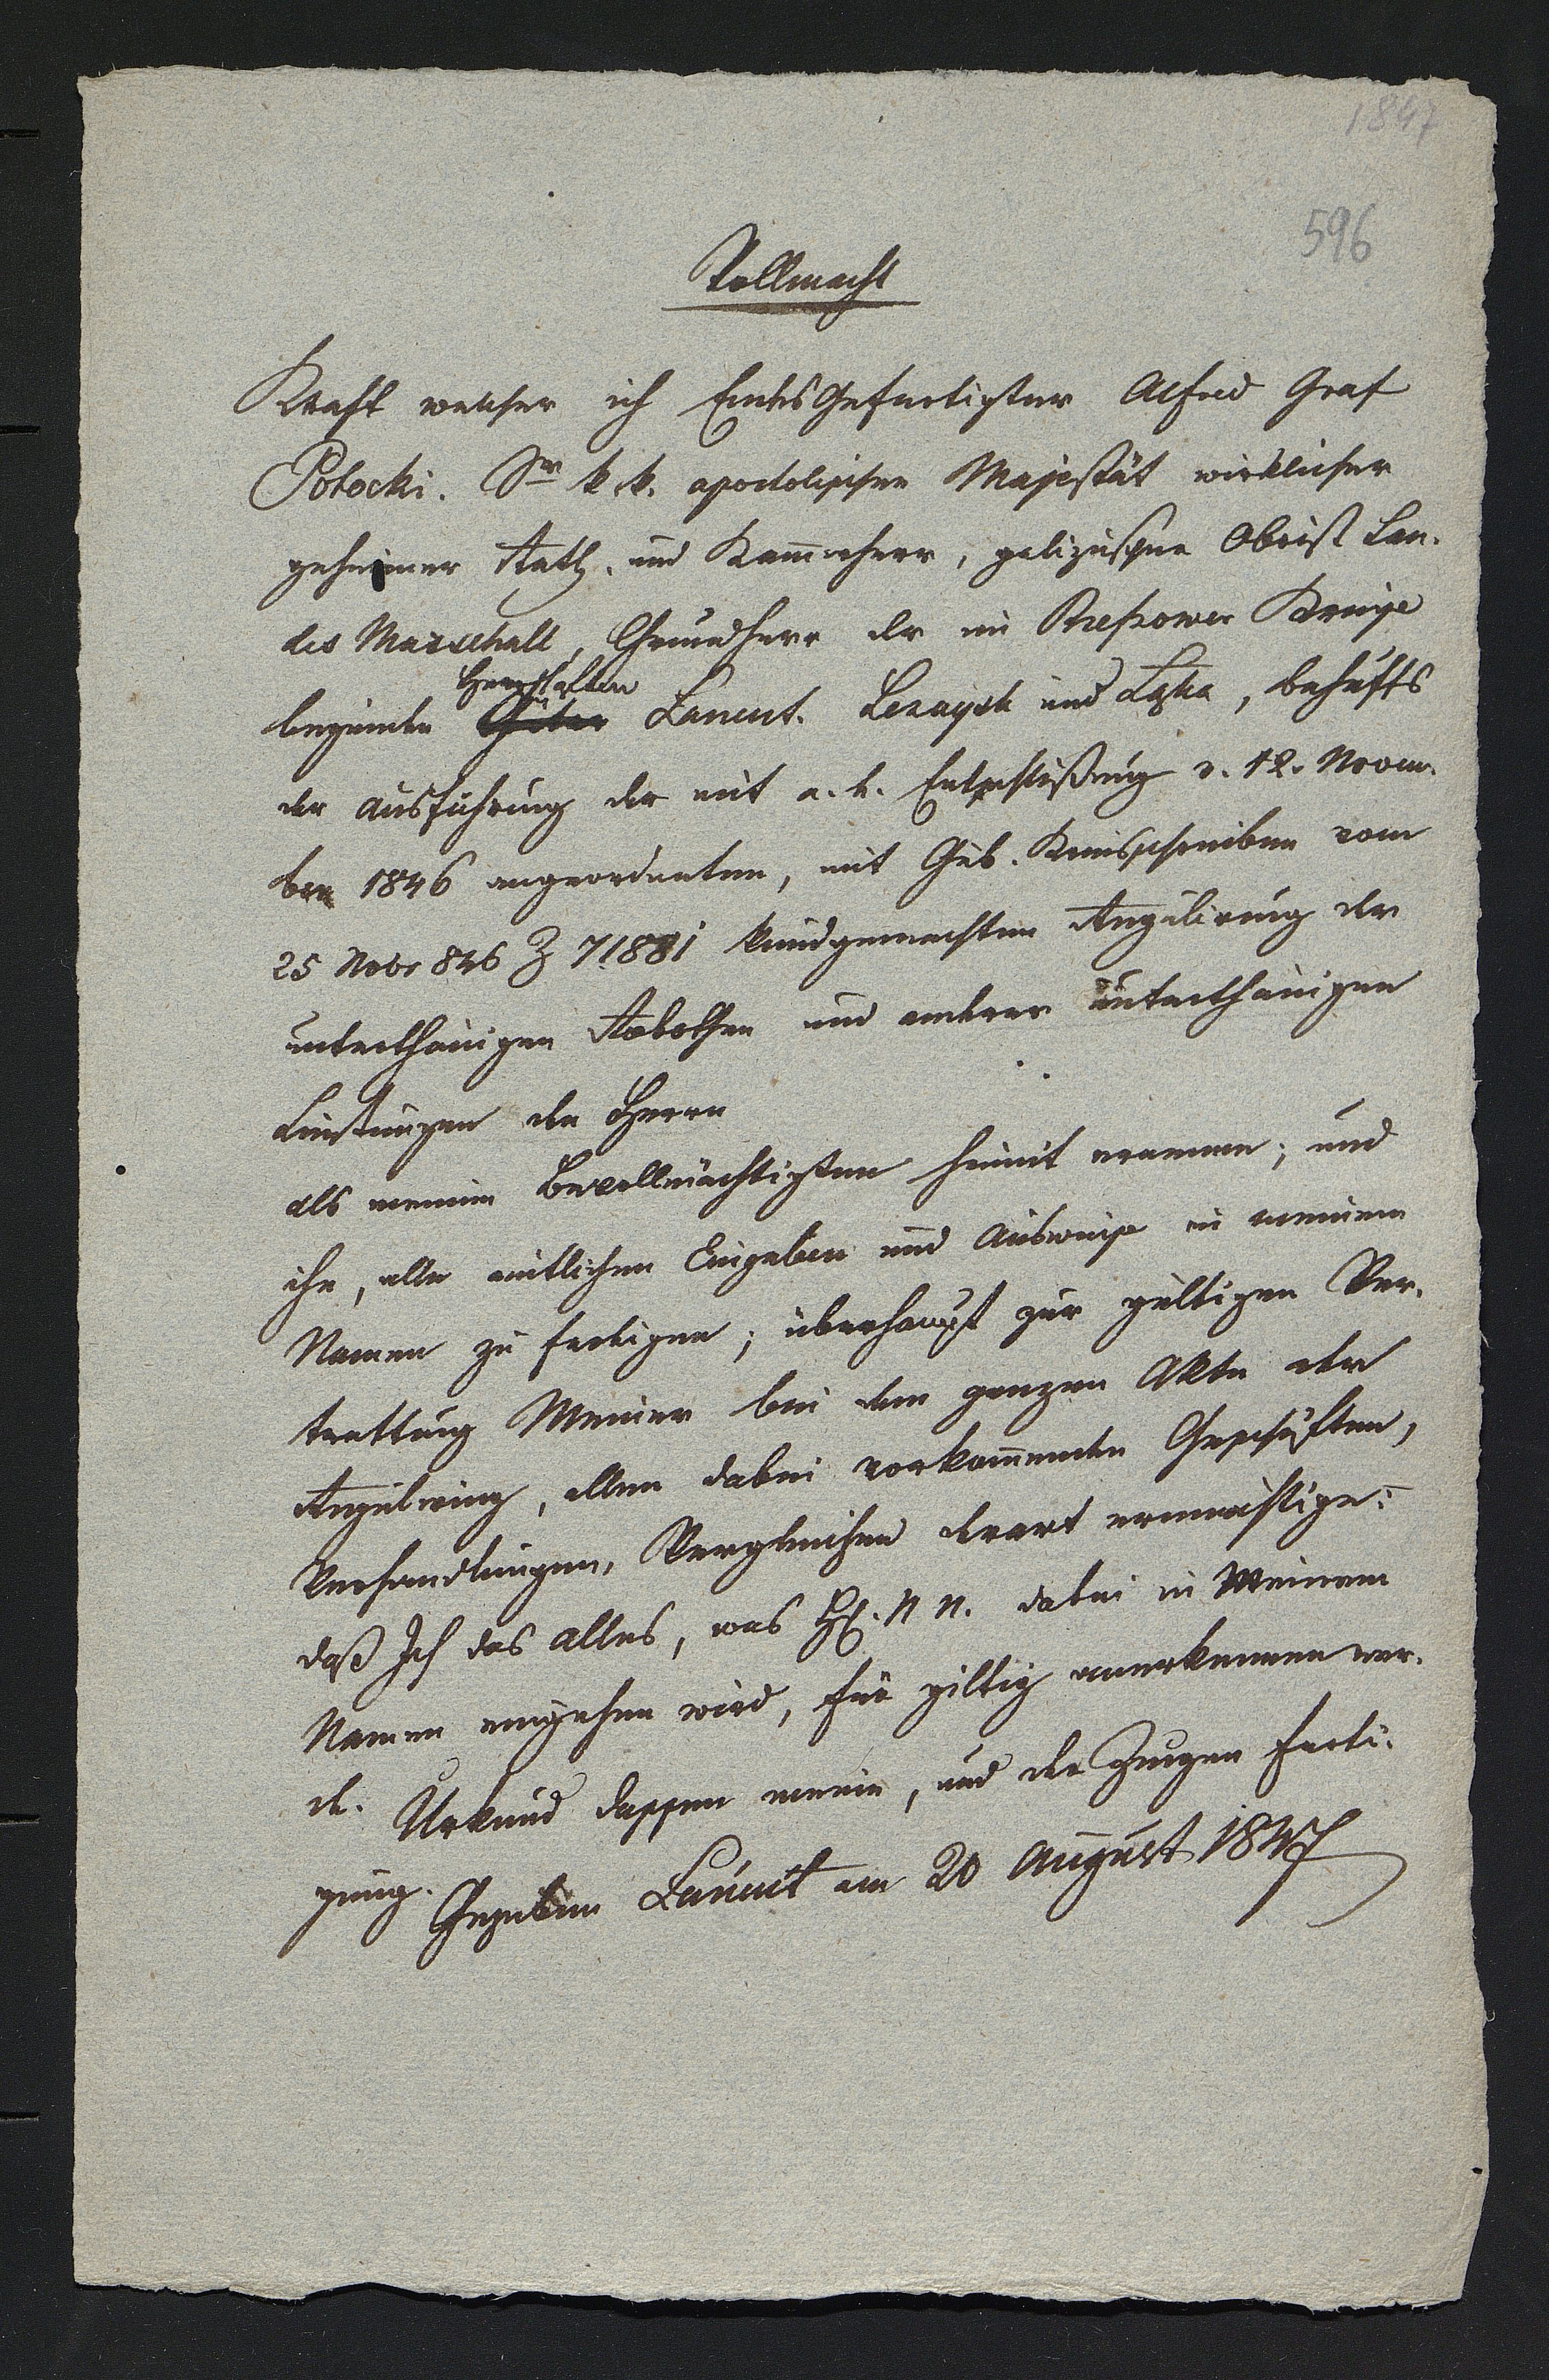 1847
596
Vollmacht
Kraft welcher ich Endesgefertigter Alfred Graf
Potocki. Sr k. k. apostolischen Majestät wirklicher
geheimer Rath, und Kam̄erherr, galizischer Obrist Lan-
des Marschall, Grundherr der im Rzeszower Kreise
liegende Güter Herrschaften Łancut. Lezaysk und Łąka, behuffs
der Ausführung der mit a. h. Entschließung v. 12. Novem-
ber 1846 angeordneten, mit Gub. Kreisschreiben vom
25 Nober 846 Z 71881 kundgemachten Regulirung der
unterthänigen Robothen und anderer unterthänigen
Leistungen den Herrn
als meinen Bevollmächtigten hiemit ernenne; und
ihn, alle amtlichen Eingaben und Ausweise in meinem
Namen zu fertigen; überhaupt zur gültigen Ver-
trettung Meiner bei dem ganzen Akte der
Regulirung, allen dabei vorkom̄enden Geschäften,
Verhandlungen, Vergleichen derart ermächtige:
daß Ich das alles, was H. N N. dabei in Meinem
Namen eingehen wird, für giltig anerkennen wer-
de. Urkund dessen meine, und der Zeugen Ferti-
gung.
Gegeben Łancut am 20 August 1847